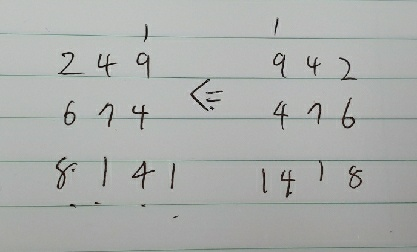 1 1
2 4 9 <= 9 4 2
6 7 4 4 7 6
8 1 4 1 1 4 1 8